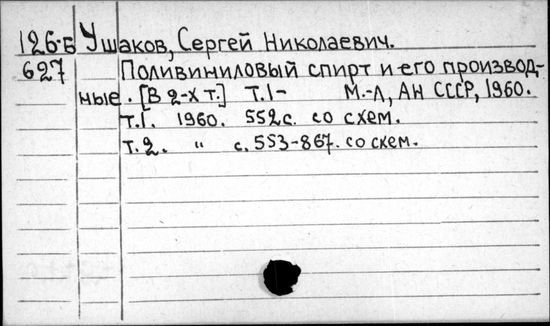 126-Б Ушаков, Сергей Николаевич.
627 Поливиниловый спирт и его производ-
ные. [В 2-х т.] Т.1- М.-Л, АН СССР, 1960.
Т.1. 1960. 552с. со схем.
Т.2. " с. 553-867. со схем.